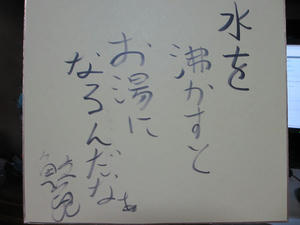 水を
沸かすと
お湯に
なるんだなぁ